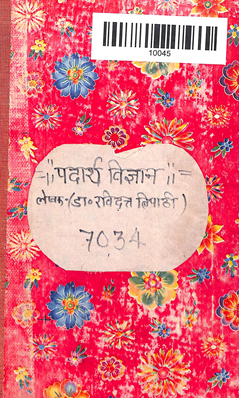 10045
="पदार्थ विज्ञान"=
लेखक-(डा॰ रविदत्त त्रिपाठी)
7034